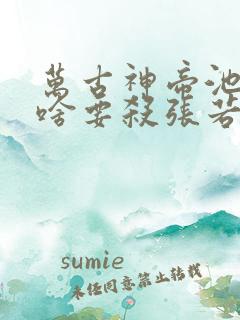 萬古神帝池
啥要殺張若
sumie
未经同意禁止转载